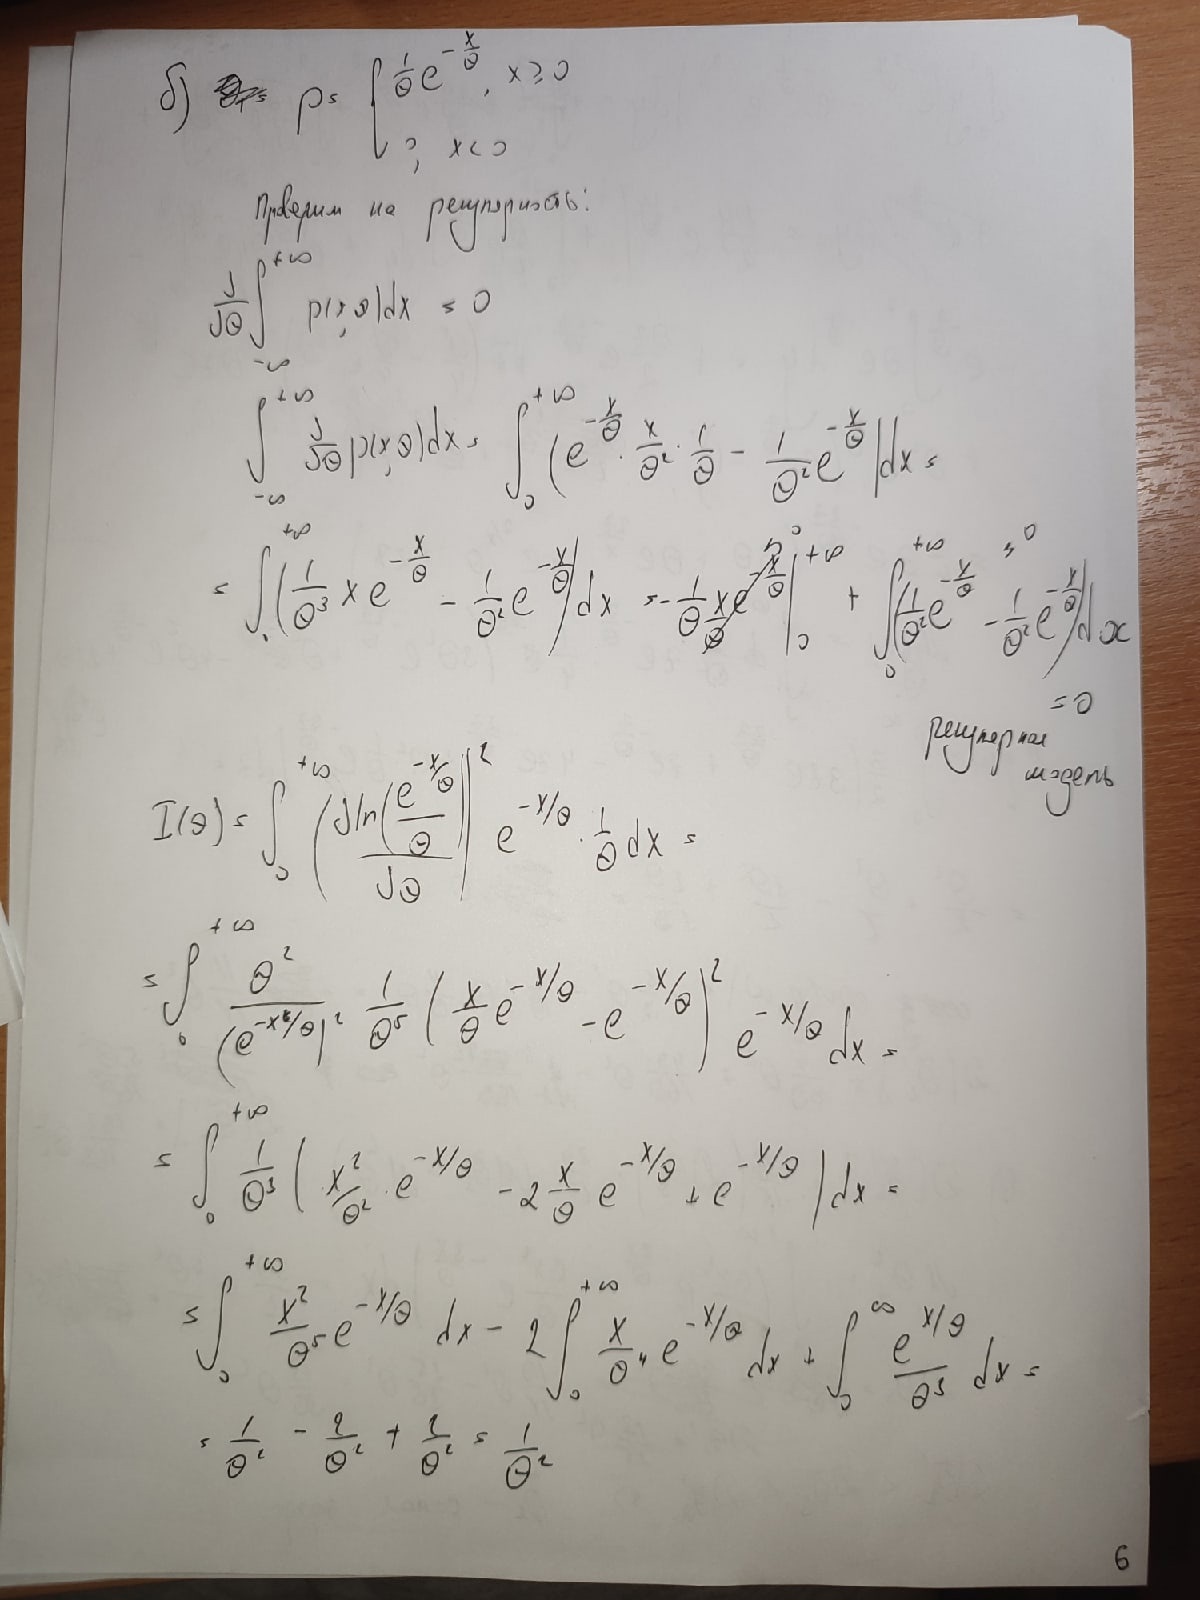 б) p = { 1/θ e^{-x/θ}, x ≥ 0
0, x < 0
Проверим на регулярность:
∂/∂θ ∫_{-∞}^{+∞} p(x,θ)dx = 0
∫_{-∞}^{+∞} ∂/∂θ p(x,θ)dx = ∫_0^{+∞} (e^{-x/θ} · x/θ² · 1/θ - 1/θ² e^{-x/θ})dx =
= ∫_0^{+∞} (1/θ³ x e^{-x/θ} - 1/θ² e^{-x/θ})dx = -1/θ x/θ e^{-x/θ} |_0^{+∞} + ∫_0^{+∞} (1/θ² e^{-x/θ} - 1/θ² e^{-x/θ})dx
= 0
регулярная
модель
I(θ) = ∫_0^{+∞} (∂ln(e^{-x/θ}/θ)/∂θ)² e^{-x/θ} · 1/θ dx =
= ∫_0^{+∞} θ²/(e^{-x/θ})² 1/θ⁵ (x/θ e^{-x/θ} - e^{-x/θ})² e^{-x/θ} dx =
= ∫_0^{+∞} 1/θ³ (x²/θ² · e^{-x/θ} - 2 x/θ e^{-x/θ} + e^{-x/θ})dx =
= ∫_0^{+∞} x²/θ⁵ e^{-x/θ} dx - 2 ∫_0^{+∞} x/θ⁴ e^{-x/θ} dx + ∫_0^{∞} e^{x/θ}/θ³ dx =
= 1/θ² - 2/θ² + 2/θ² = 1/θ²
6